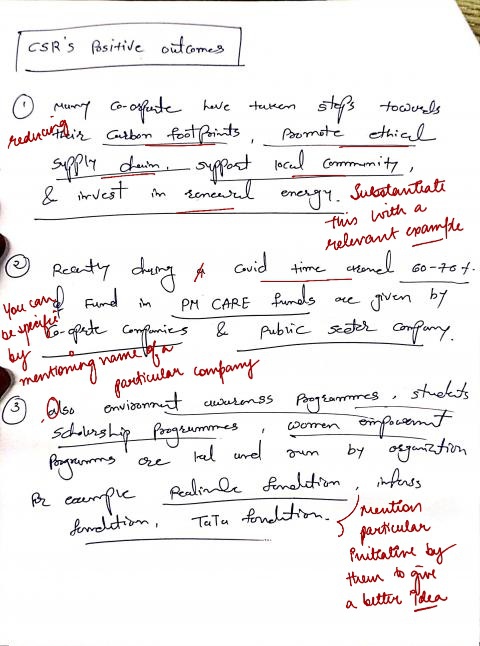 CSR's Positive outcomes
① Many Co-oparate have taken steps towards
reducing
their Carbon footpoints, Promote ethical
supply chain, support local community,
& invest in renewal energy.
Substantiate
this with a
relevant example
② Recently during Covid time around 60-70%
of Fund in PM CARE funds are given by
Co-oparte Companies & Public sector company.
You can
be specific
by
mentioning name of a
particular company
③ Also environment awarenss Programmes, students
Scholarship Programmes, women empowerment
Programms are led and run by organization
for example Realinde fondition, inforss
fondition, TaTa fondition.
Mention
particular
Initiative by
them to give
a better idea